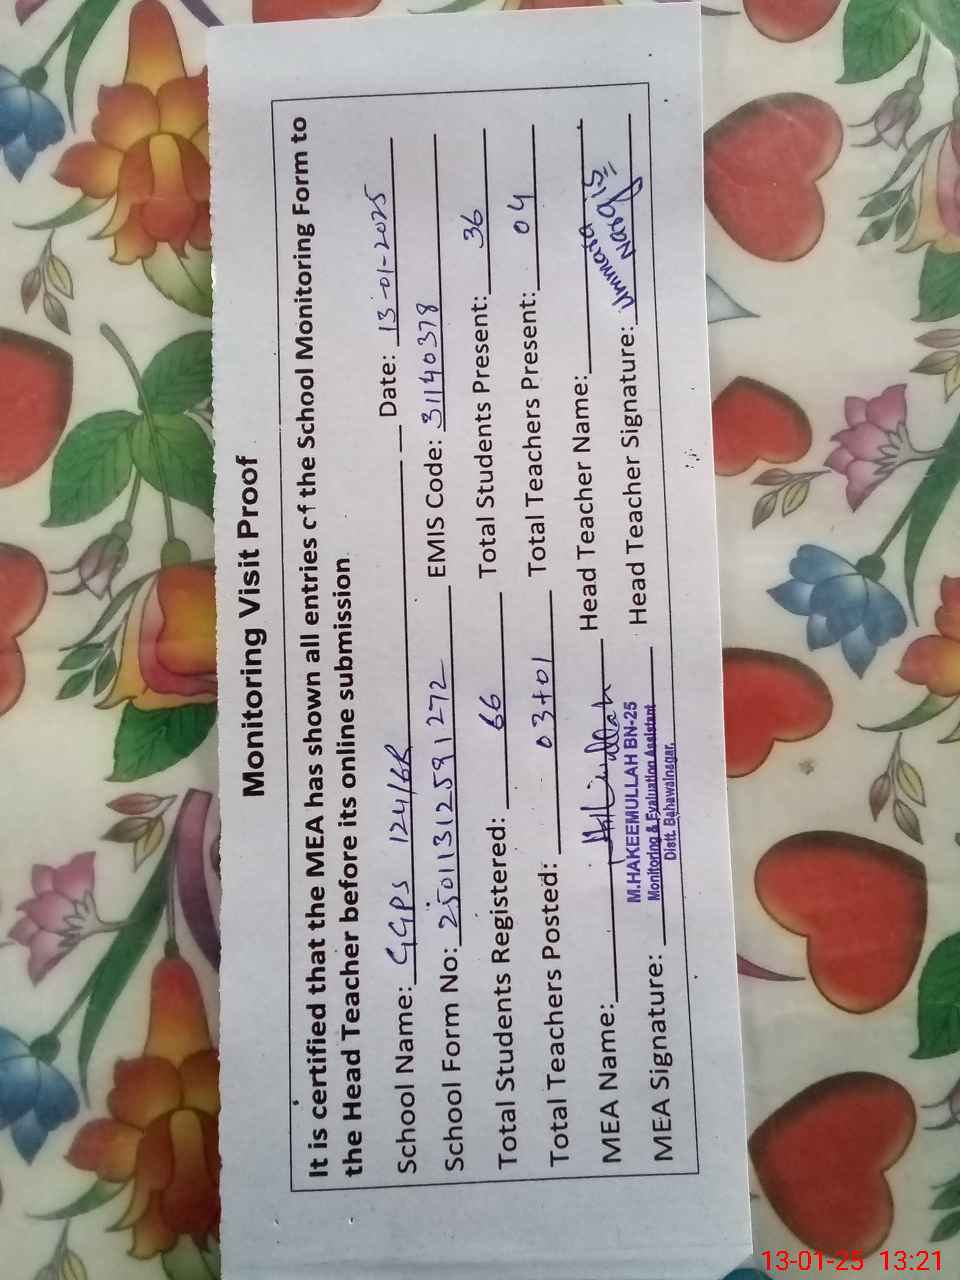 Monitoring Visit Proof
It is certified that the MEA has shown all entries of the School Monitoring Form to
the Head Teacher before its online submission
School Name: GGPS 124/6R Date: 13-01-2025
School Form No: 25011312591272 EMIS Code: 31140378
Total Students Registered: 66 Total Students Present: 36
Total Teachers Posted: 03+01 Total Teachers Present: 04
MEA Name: Head Teacher Name:
M.HAKEEMULLAH BN-25
MEA Signature: Monitoring & Evaluation Assistant Head Teacher Signature: Ummara Nargis
Distt. Bahawalnagar.
13-01-25 13:21